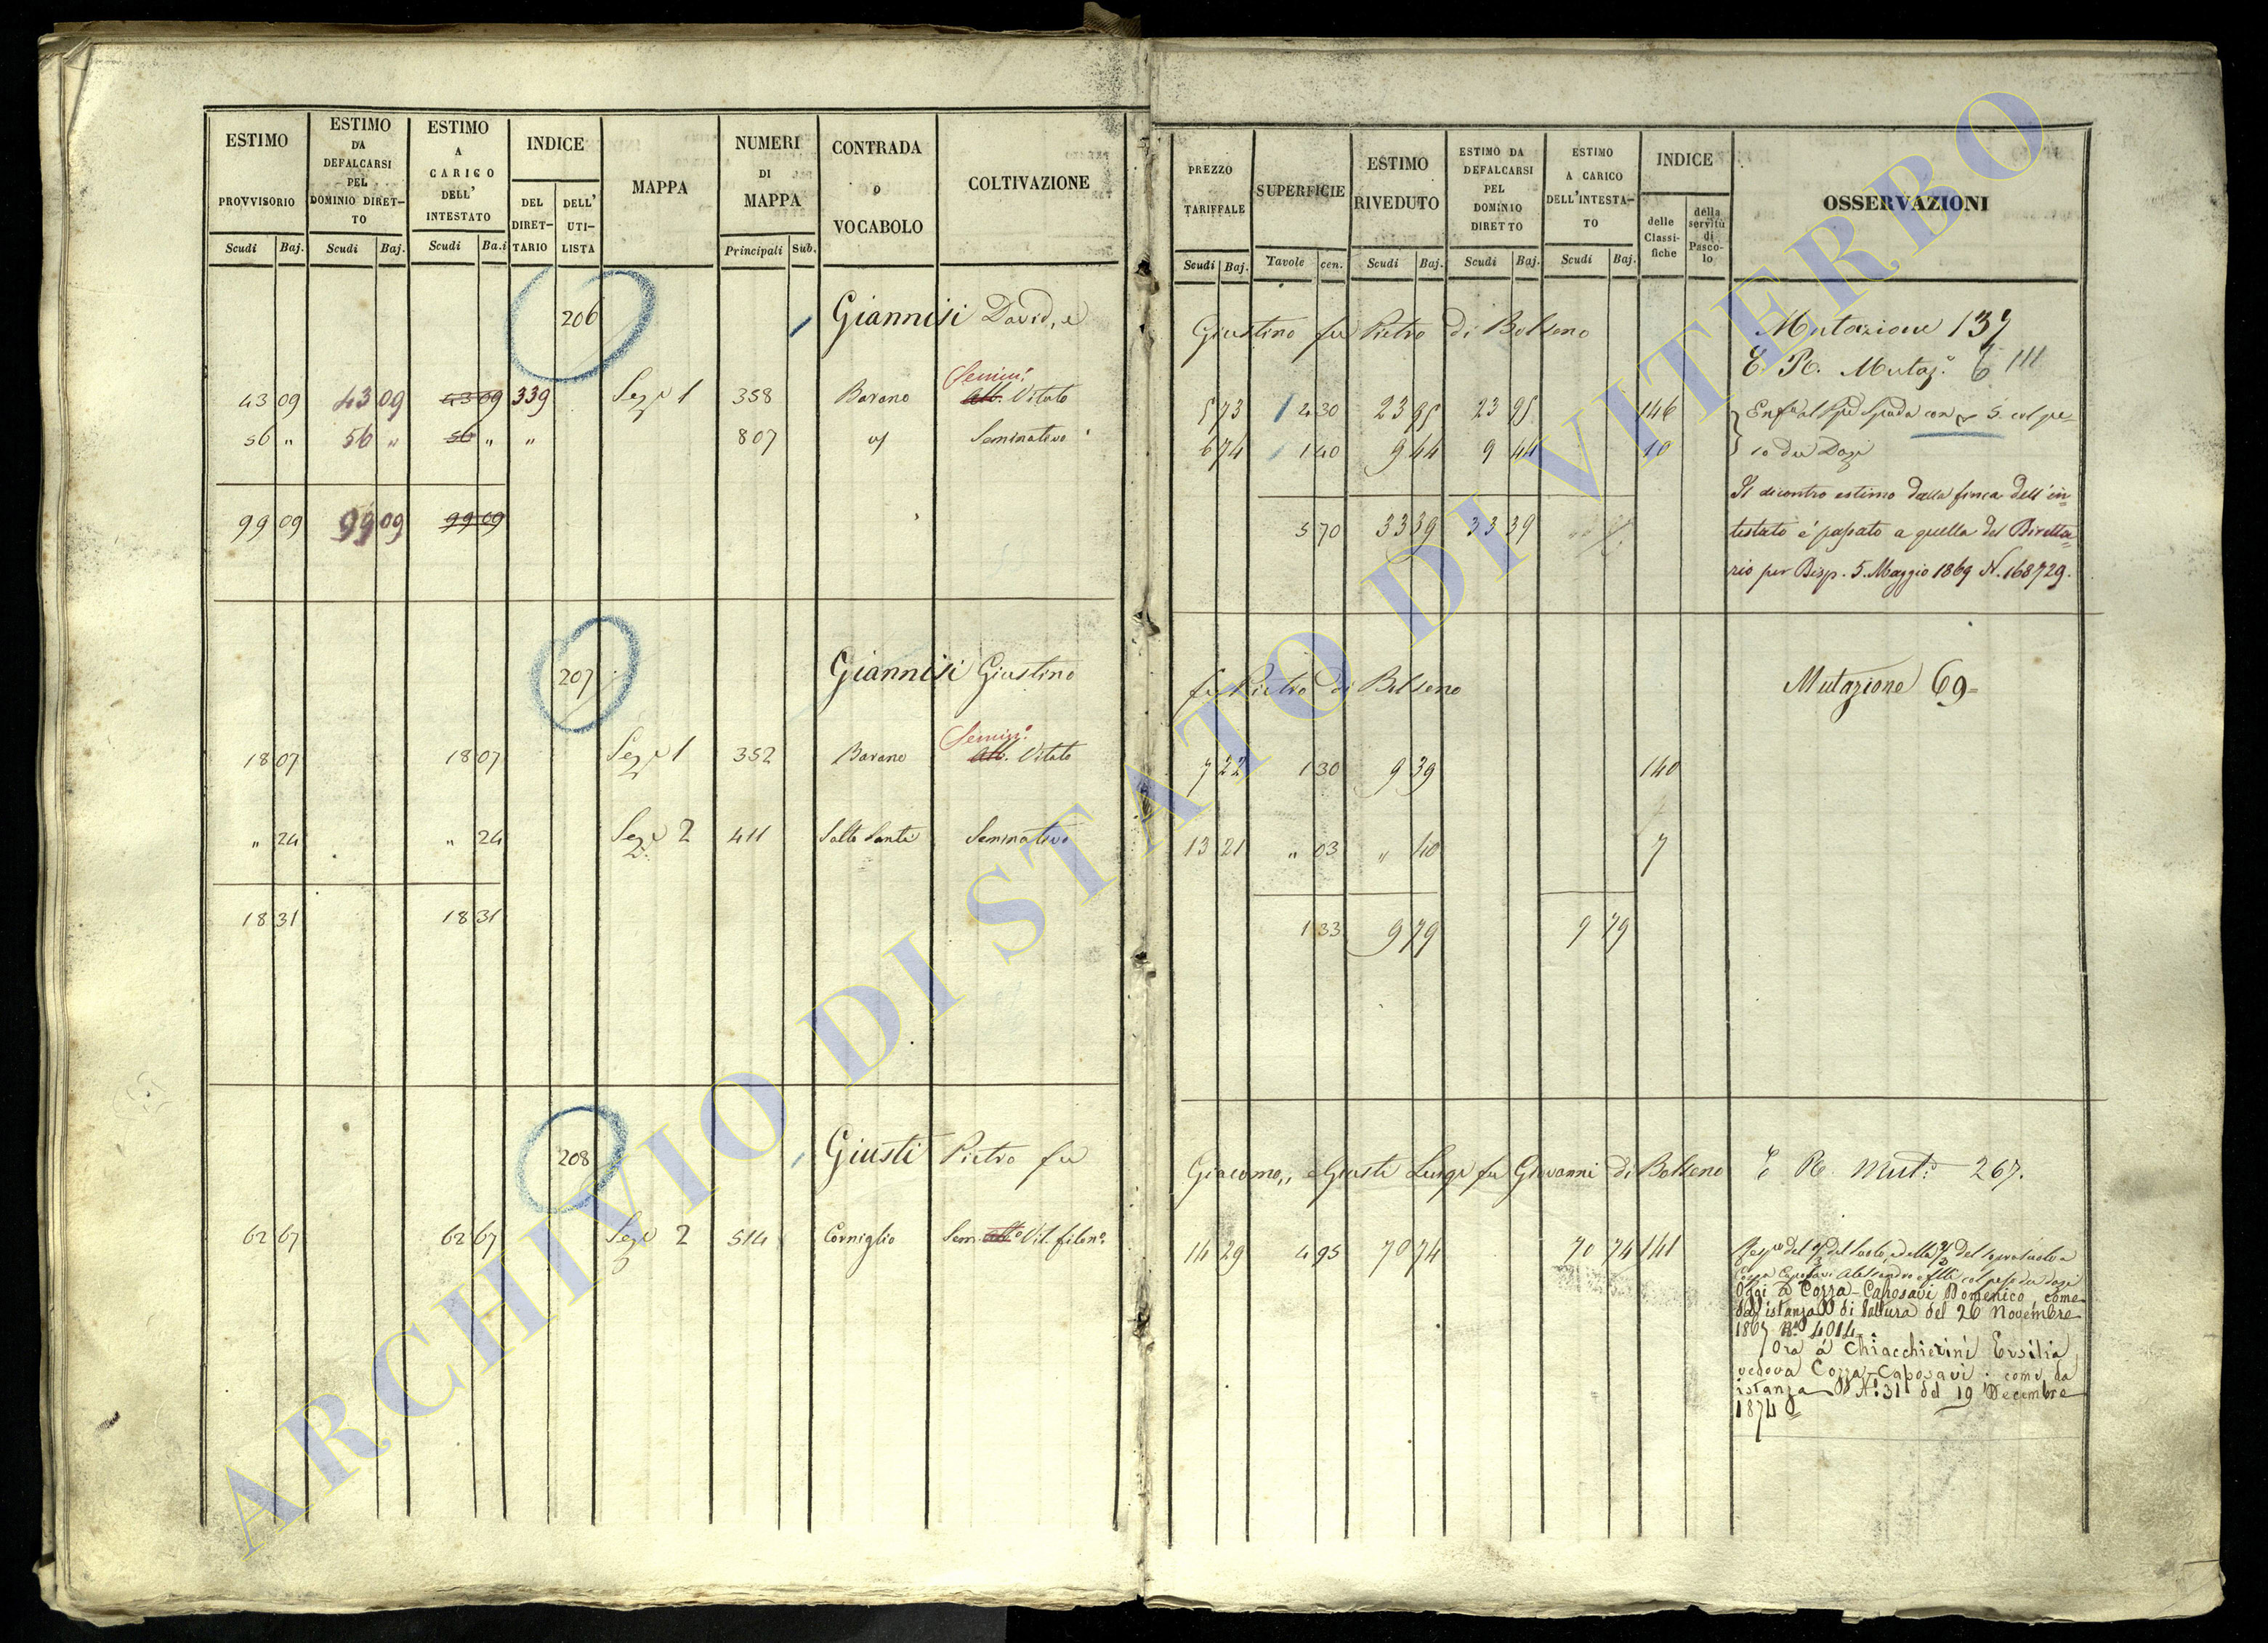 ESTIMO PROVVISORIO
Scudi Baj.
ESTIMO DA DEFALCARSI PEL DOMINIO DIRETTO
Scudi Baj.
ESTIMO A CARICO DELL' INTESTATO
Scudi Ba.i
INDICE
DEL DIRETTARIO
DELL' UTILISTA
MAPPA
NUMERI DI MAPPA
Principali Sub.
CONTRADA O VOCABOLO
COLTIVAZIONE
PREZZO TARIFFALE
Scudi Baj.
SUPERFICIE
Tavole cen.
ESTIMO RIVEDUTO
Scudi Baj.
ESTIMO DA DEFALCARSI PEL DOMINIO DIRETTO
Scudi Baj.
ESTIMO A CARICO DELL'INTESTATO
Scudi Baj.
INDICE
delle Classifiche
della servitù di Pascolo
OSSERVAZIONI
206 Giannisi David, e Giustino fu Pietro di Bolseno Mutazione 137
E. R. Mutaz. 111
Semin.
43 09 43 09 43 09 339 Sez. 1 358 Barano Alb. Vitato 5 73 4 30 23 95 23 95 146
56 " 56 " 56 " " 807 Seminativo 6 74 1 40 9 44 9 44 10
99 09 99 09 99 09 5 70 33 39 33 39
Il dicontro estimo dalla finca dell'in=
testato è passato a quella del Diretta=
rio per Disp. 5. Maggio 1869 N. 168729.
207 Giannisi Giustino fu Pietro di Bolseno Mutazione 69=
Semin.
18 07 18 07 Sez. 1 352 Barano Alb. Vitato 7 22 1 30 9 39 140
" 24 " 24 Sez. 2 411 Salto Santi Seminativo 13 21 " 03 " 40 7
18 31 18 31 1 33 9 79 9 79
208 Giusti Pietro fu Giacomo,, e Giusti Luigi fu Giovanni di Bolseno E R. Mut. 267.
62 67 62 67 Sez. 2 514 Corniglio Sem. Alb. Vit. filon. 14 29 4 95 70 74 70 74 141
Oggi a Cozza-Caposavi Domenico, come
da istanza di Voltura del 26 Novembre
N. 4014.
Ora a Chiacchierini Ersilia
vedova Cozza-Caposavi come da
istanza N. 31 del 19 Decembre
1874
ARCHIVIO DI STATO DI VITERBO